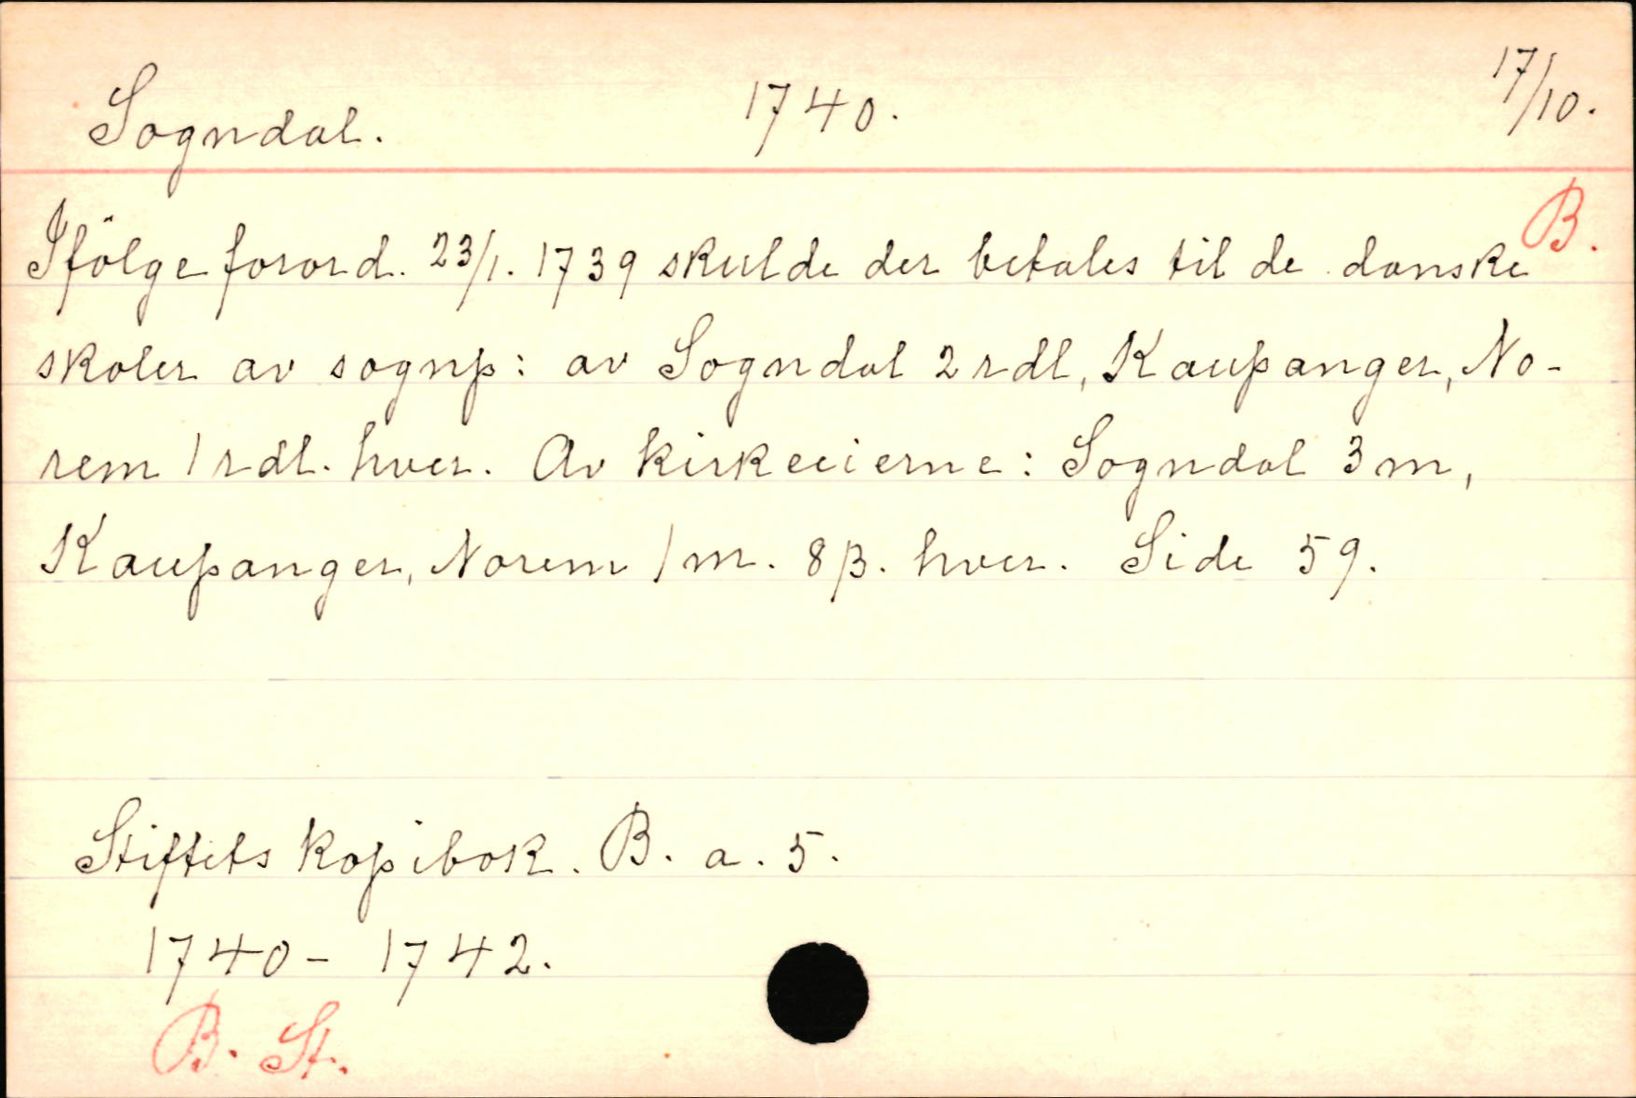 Sogndal. 1740. 17/10.
B.
Ifölge forord. 23/1. 1739 skulde der betales til de danske
skoler av sognp: av Sogndal 2 rdl, Kaupanger, No-
rem 1 rdl. hver. Av kirkeeierne: Sogndal 3 m,
Kaupanger, Norem 1 m. 8 β. hver. Side 59.
Stiftets kopibok. B. a. 5.
1740 - 1742.
B. St.